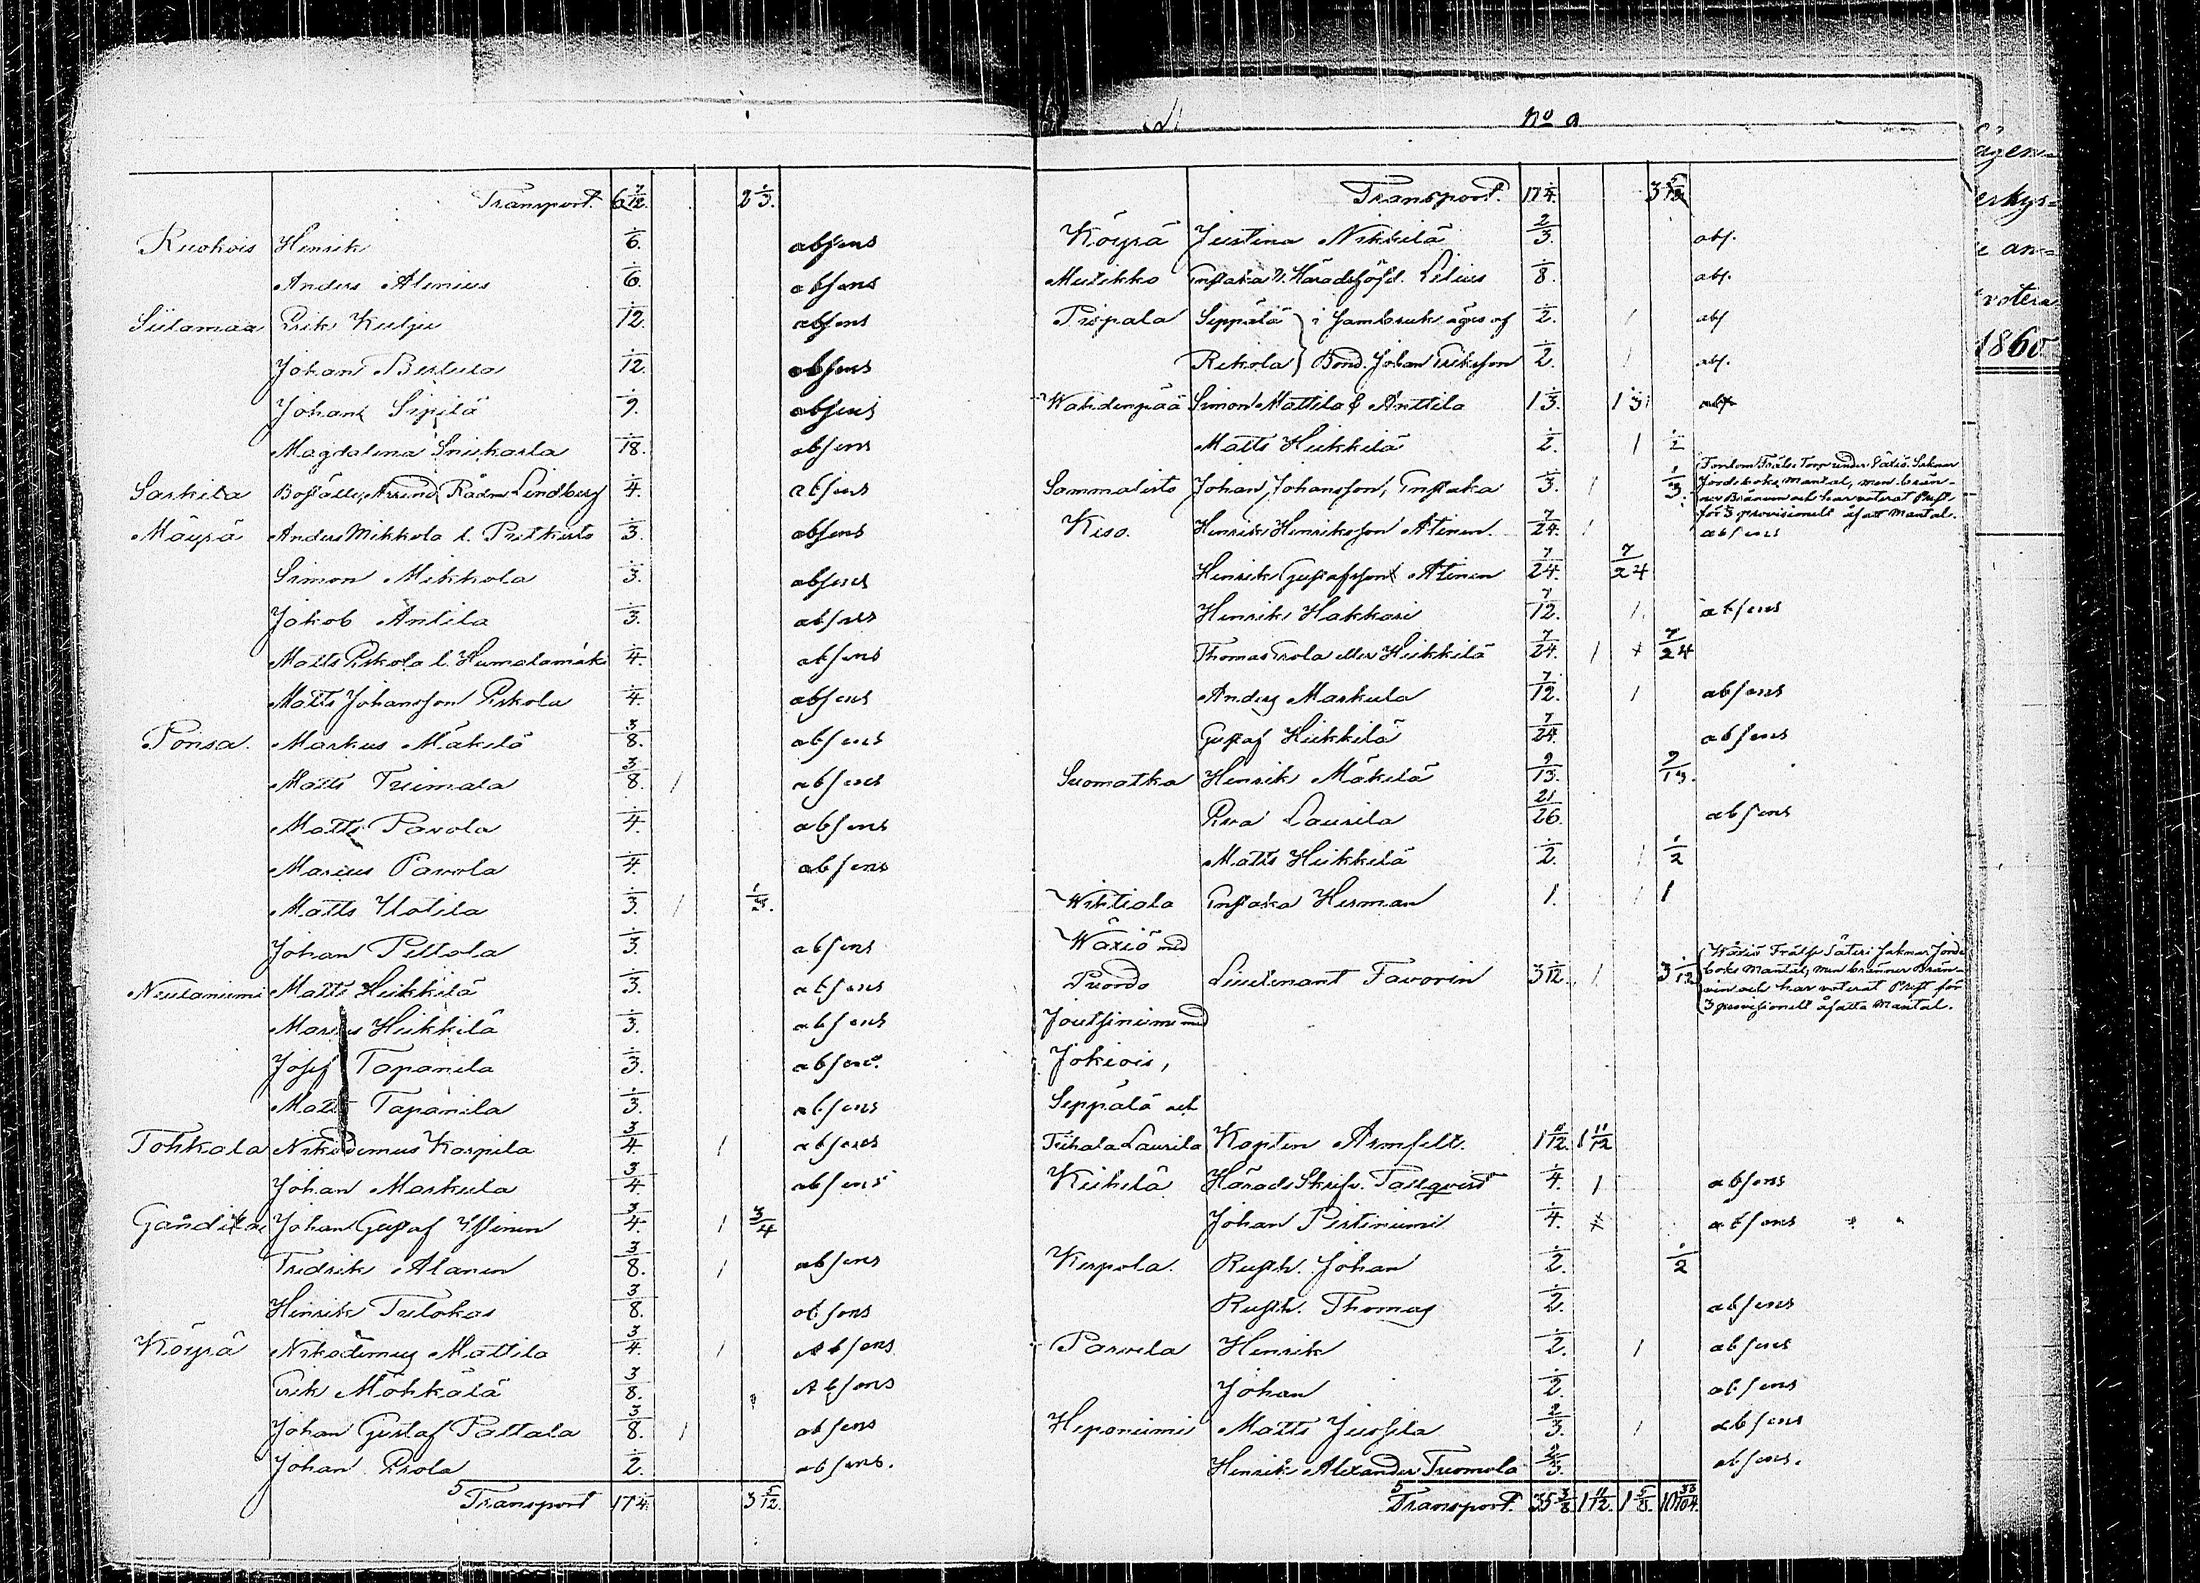 Transport. 6 7/12. 2 1/3.
Ruohois Henrik 1/6. absens
Anders Alenius 1/6. absens
Siilamaa Erik Kulju 1/12. absens
Johan Berlura 1/12. absens
Johan Sipilä 1/9. absens
Magdalena Snickarla 1/18. absens
Sarkila Boställe, Arrend. Rådm Lindberg 1/4. absens
Möyrä Anders Mikkola l. Pietkusto 1/3. absens
Simon Mikkola 1/3. absens
Jakob Antila 1/3. absens
Matts Eskola l. Humalamäki 1/4. absens
Matts Johansson Eskola 1/4. absens
Ponsa. Markus Mäkilä 3/8. absens
Matts Tuimala 3/8. 1 absens
Matts Pavola 1/4. absens
Marius Pavola 1/4. absens
Matts Uotila 1/3. 1 1/3.
Johan Peltola 1/3. absens
Neulaniemi Matts Heikkilä 1/3. absens
Heikkilä 1/3. absens
Josef Tapanila 1/3. absens
Matts Tapanila 1/3. absens
Tohkala Nikodemus Karpila 3/4. 1 absens
Johan Markula 3/4. absens
Johan Gustaf Yllinen 3/4. 1 3/4
Fredrik Alanen 3/8. 1 absens
Henrik Tulokas 3/8. absens
Köyrä Nikodemus Mattila 3/4. 1 Absens
Erik Möhkälä 3/8. Absens
Johan Gustaf Pallala 3/8. 1 absens
Johan Erola 1/2. absens.
Transport 17 1/4. 3 5/12.
No 9
Transport. 17 1/4. 3 5/12
Köyrä Justina Nikkilä 2/3. abs.
Mulikko Enkan V. Häradshöfd. Lilius 1/8. abs.
Pispala Seppälä } i Sambruk äges af 1/2. 1 abs
Rekola } Bond. Johan Eriksson 1/2. 1 abs.
Wahdenpää Simon Mattila & Anttila 1 1/3. 1 1/3. abs
Matts Heikkilä 1/2. 1 1/2
Sammalisto Johan Johansson, Enkan 1/3. 1 1/3. Fordom Frälse Torp under Säriö. Saknar
Jordeboks Mantal, men brän-
ner Bränvin och har voterat Skrift
för 3 provisionelt åsatt Mantal.
Kiso. Henrik Henriksson Alinen. 7/24. 1 absens
Henrik Gustafsson Alinen 7/24. 7/24
Henrik Hakkari 7/12. 1. absens
Thomas Erola eller Heikkilä 7/24. 1 x 7/24
Anders Markula 7/12. 1 absens
Gustaf Heikkilä 7/24. absens
Suomatka Henrik Mäkilä 9/13. 9/13.
Eva Laurila 21/26. absens
Matts Heikkilä 1/2. 1 1/2
Wihtiala Enkan Herman 1. 1 1
Wäriö med
Puordo Lieutenant Favorin 3 1/12. 1 3 1/12 Wäriö Frälse Säteri saknar Jorde
boks Mantal, men bränner Brän-
vin och har voterat Skrift för
3 provisionelt åsatta Mantal.
Joutsiniemi med
Jokiois,
Seppälä och
Tuhala Laurila Kapten Armfelt. 1 11/12. 1 11/12
Kiihilä Härads Skrifv. Tallqvist 1/4. 1 absens
Johan Pietiniemi 1/4. x absens
Kerpola. Rusth. Johan 1/2. 1/2
Rusth. Thomas 1/2. absens
Parvela Henrik 1/2. 1 absens
Johan 1/2. absens
Heponiemi Matts Jussila 2/3. 1 absens
Henrik Alexander Tuomola 2/3. absens.
Transport. 35 3/8. 1 11/12. 1 5/8. 10 33/104.
ägen-
erkys-
e an-
votera
1860